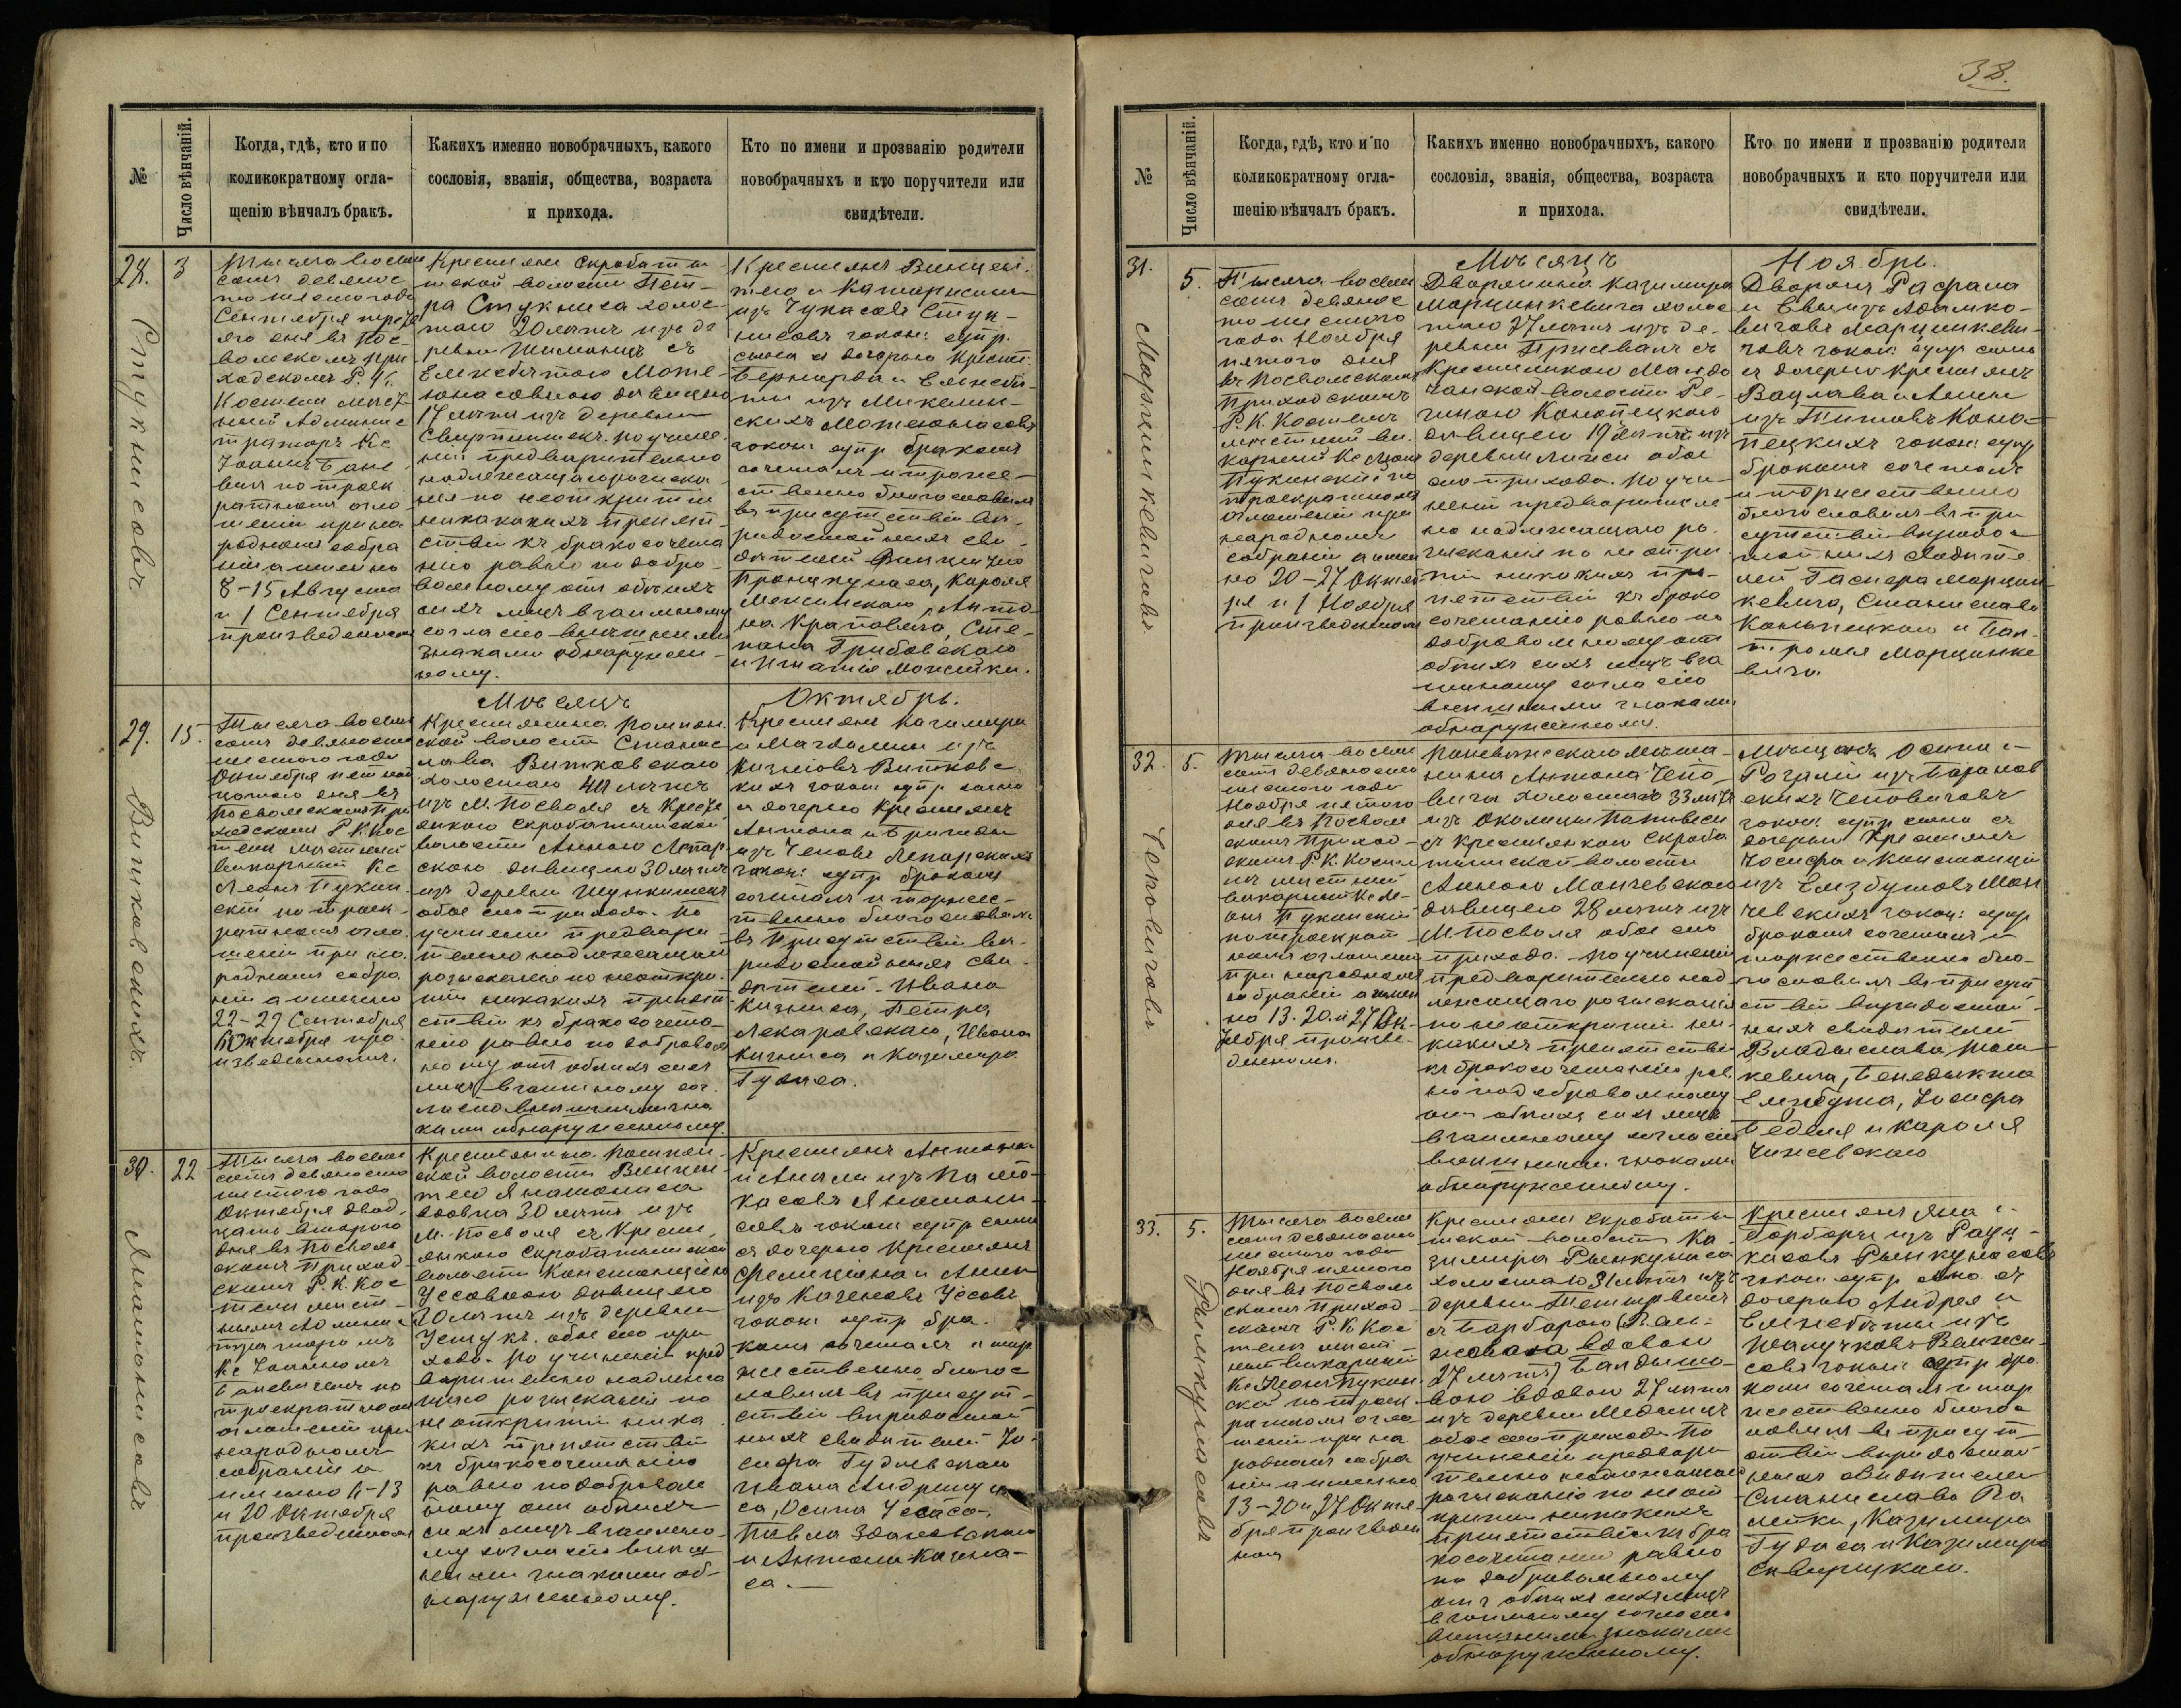 38.
№
Число вѣнчаній.
Когда, гдѣ, кто и по
коликократному огла-
шенію вѣнчалъ бракъ.
Какихъ именно новобрачныхъ, какого
сословія, званія, общества, возраста
и прихода.
Кто по имени и прозванію родители
новобрачныхъ и кто поручители или
свидѣтели.
28.
3
Стукнисовъ
Тысяча восемь
сотъ девянос
то шестого года
Сентября третья
яго дня въ Пос
вольскомъ При
ходскомъ Р. К.
Костелѣ мѣст
ный Админис
траторъ Кс
Іоаннъ
по троек
ратномъ огло
шеніи при на
родномъ собра
ніи а именно
8-15 Августа
и 1 Сентября
произведенномъ
Крестьяни Скроботы
шской волости Пет-
ра Стукниса холос
таго 20 лѣтъ изъ де
ревни Шиманцъ съ
Елисаветою Моте-
юнасовною дѣвицею
17 лѣтъ изъ деревни
по учине
ніи предварительно
надлежащаго розыска
нія по неоткрытіи
никакихъ препят-
ствій къ бракосочета
нію равно по добро-
вольному отъ обоихъ
сихъ лицъ взаимному
согласію внѣшними
знаками обнаружен-
ному.
Крестьянъ Винцен-
тего и Катарины
изъ Чукасовъ Стук-
нисовъ закон: супр.
сына съ дочерью Крест:
Бернарда и Елисаве-
ты изъ Микелин-
скихъ Мотеюнасовъ
закон супр бракомъ
сочеталъ и торже-
ственно благословилъ
въ присутствіи вѣ-
родостойныхъ сви-
дѣтелей Винцентія
Пронцкунаса, Кароля
Мексинскаго, Анто-
на Краповича, Сте-
пана Грибовскаго
и Игнатія Можейки.
Мѣсяцъ Октябрь.
29.
15.
Витковскихъ.
Тысяча восемь
сотъ девяносто
шестого года
Октября пятнад
цатаго дня въ
Посвольскомъ При
ходскомъ Р. К. Кос
телѣ мѣстный
викарный Кс
Леонъ Пукин-
скій по троек-
ратномъ огло-
шеніи при на-
родномъ собра
ніи а именно
22-29 Сентября
6 Октября про-
изведенномъ.
Крестьянина Помпян
ской волости Станис
лава Витковскаго
холостаго 40 лѣтъ
изъ М. Посволя съ Кресть
янкою Скробатышской
волости Анною Лепар-
скою дѣвицею 30 лѣтъ
изъ деревни
обое сего прихода. По
учиненіи предвари-
тельно надлежащаго
розысканія по неоткры-
тіи никакихъ препят-
ствій къ бракосочета-
нію равно по доброволь
ному отъ обоихъ сихъ
лицъ взаимному сог-
ласію внѣшними зна
ками обнаруженному.
Крестьянъ Казимира
и Магдалины изъ
Кизисовъ Витковс-
кихъ закон супр сына
съ дочерью Крестьянъ
Антона и Бригиды
изъ Чеповъ Лепарскихъ
закон: супр бракомъ
сочеталъ и торжес-
твенно благословилъ
въ присутствіи вѣ-
родостойныхъ сви-
дѣтелей Ивана
Кизниса, Петра
Лекаровскаго, Ивана
Кизниса и Казимира
30.
22
Яматонисовъ
Тысяча восемь
сотъ девяносто
шестого года
Октября двад-
цать втораго
дня въ Посволь
скомъ Приход-
скомъ Р. К. Кос
телѣ мѣст-
нымъ Админис
траторомъ
Кс Іоанномъ
по
троекратномъ
оглашеніи при
народномъ
собраніи а
именно 6-13
и 20 Октября
произведенномъ
Крестьянина Помпян-
ской волости Винцен-
тего Яматониса
вдовца 30 лѣтъ изъ
М. Посволя съ Кресть
янкою Скробатышской
волости Констанціею
Уссовною дѣвицею
20 лѣтъ изъ деревни
обое сего при
хода. По учиненіи пред
варительно надлежа
щаго розысканія по
неоткрытіи ника
кихъ препятствій
къ бракосочетанію
равно по доброволь
ному отъ обоихъ
сихъ лицъ взаимно-
му согласію внѣш-
ними знаками об-
наруженному.
Крестьянъ Антона
и Анели изъ Пало-
касовъ Яматони-
совъ закон супр сына
съ дочерью Крестьянъ
Фелиціана и Анны
изъ Каченовъ Усовъ
закон супр бра-
комъ сочеталъ и тор
жественно благос
ловилъ въ присут-
ствіи вѣродостой
ныхъ свидѣтелей Іо-
сифа Гудлевскаго
Ивана Андрюну
са, Осипа Усаса,
Павла Здановскаго
и Антона Качена-
са.
№
Число вѣнчаній.
Когда, гдѣ, кто и по
коликократному огла-
шенію вѣнчалъ бракъ.
Какихъ именно новобрачныхъ, какого
сословія, званія, общества, возраста
и прихода.
Кто по имени и прозванію родители
новобрачныхъ и кто поручители или
свидѣтели.
Мѣсяцъ Ноябрь.
31.
5.
Марцинкевичовъ
Тысяча восемь
сотъ девянос
то шестого
года Ноября
пятого дня
въ Посвольскомъ
Приходскомъ
Р. К. Костелѣ
мѣстный ви-
карный Кс Леонъ
Пукинскій по
троекратномъ
оглашеніи при
народномъ
собраніи а имен
но 20-27 Октяб
ря и 1 Ноября
произведенномъ
Дворянина Казимира
Марцинкевича холос
таго 27 лѣтъ изъ де-
ревни съ
Крестьянкою
чанской волости Ре-
гиною Конопецкою
дѣвицею 19 лѣтъ изъ
деревни обое
сего прихода. По учи-
неніи предваритель
но надлежащаго ро-
зысканія по неоткры
тіи никакихъ пре-
пятствій къ брако
сочетанію равно по
добровольному отъ
обоихъ сихъ лицъ вза
имному согласію
внѣшними знаками
обнаруженному.
Дворянъ Рафала
и Евы изъ Адамко-
вичовъ Марцинкеви-
човъ закон: супр сына
съ дочерью крестьянъ
Вацлава и Анны
изъ Титовъ Коно-
пецкихъ закон: супр
бракомъ сочеталъ
и торжественно
благословилъ въ при
сутствіи вѣродо-
стойныхъ свидѣте-
лей Гаспера Марцин
кевича, Станислава
Конопецкаго и Бал-
тромея Марцинке
вича.
32.
5.
Чеповичовъ
Тысяча восемь
сотъ девяносто
шестого года
Ноября пятого
дня въ Посволь
скомъ Приход-
скомъ Р. К. Косте
лѣ мѣстный
викарный Кс Ле-
онъ Пукинскій
по троекрат-
номъ оглашеніи
при народномъ
собраніи а имен
но 13. 20. и 27 Ок-
тября произве-
денномъ.
Поневѣжскаго Мѣща-
нина Антона Чепо-
вича холостаго 33 лѣтъ
изъ околицы
съ крестьянкою Скроба
тышской волости
Анною Манчевскою
дѣвицею 28 лѣтъ изъ
М Посволя обое сего
прихода. По учиненіи
предварительно над
лежащаго розысканія
по неоткрытіи ни-
какихъ препятствій
къ бракосочетанію рав
но по добровольному
отъ обоихъ сихъ лицъ
взаимному согласію
внѣшними знаками
обнаруженному.
Мѣщанъ Осипа и
Розаліи изъ Баранов
скихъ Чеповичовъ
закон: супр сына съ
дочерью Крестьянъ
Іосифа и Констанціи
изъ Елзбутовъ Ман
чевскихъ закон: супр
бракомъ сочеталъ и
торжественно бла-
гословилъ въ присут
ствіи вѣродостой-
ныхъ свидѣтелей
Владыслава
кевича, Бенедыкта
Елзбута, Іосифа
Беделя и Кароля
Чижевскаго
33.
5.
Рынкунасовъ
Тысяча восемь
сотъ девяносто
шестого года
Ноября пятого
дня въ Посволь
скомъ Приход-
скомъ Р. К. Кос
телѣ мѣст-
ный викарный
Кс Леонъ Пукин-
скій по троек
ратномъ огла
шеніи при на
родномъ собра
ніи а именно
13-20 и 27 Октя-
бря произведен
номъ
Крестьянина Скробаты
шской волости Ка-
зимира Рынкунаса
холостаго 31 лѣтъ изъ
деревни
съ Барбарою
вдовою
27 лѣтъ)
вою вдовою 27 лѣтъ
изъ деревни
обое сего прихода По
учиненіи предвари
тельно надлежащаго
розысканія по неот
крытіи никакихъ
препятствій къ бра
косочетанію равно
по добровольному
отъ обоихъ сихъ лицъ
взаимному согласію
внѣшними знаками
обнаруженному.
Крестьянъ Яна и
Барбары изъ
Рынкунасовъ
закон супр сына съ
дочерью Андрея и
Елисаветы изъ
закон: супр бра
комъ сочеталъ и тор
жественно благос
ловилъ въ присут-
ствіи вѣродостой
ныхъ свидѣтелей
Станислава
Казимира
Гудаса и Казимира